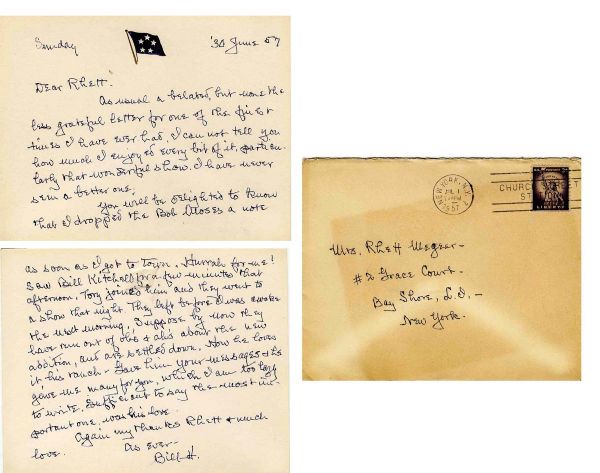 Sunday '30 June 57
Dear Rhett.
As usual a belated, but none the
less grateful letter for one of the finest
times I have ever had, I can not tell you
how much I enjoyed every bit of it, particu-
larly that wonderful show. I have never
seen a better one.
You will be delighted to know
that I dropped the Bob Moses a note
as soon as I got to town. Hurrah for me!
Saw Bill Kitchell for a few minutes that
afternoon, Tory joined him and they went to
a show that night. They left before I was awake
the next morning, I suppose by now they
have run out of ohs & ahs about the new
addition, and are settled down. How he loves
it his ranch - Gave him your messages & he
gave me many for you, which I am too lazy
to write. Sufficient to say the most im-
portant one, was his love.
Again my thanks Rhett & much
love. As ever -
Bill H.
NEW YORK, N.Y.
JUL 1
1957
CHURCH ST
LIBERTY
Mrs. Rhett Megeer -
#2 Grace Court.
Bay Shore, L.I. -
New York.